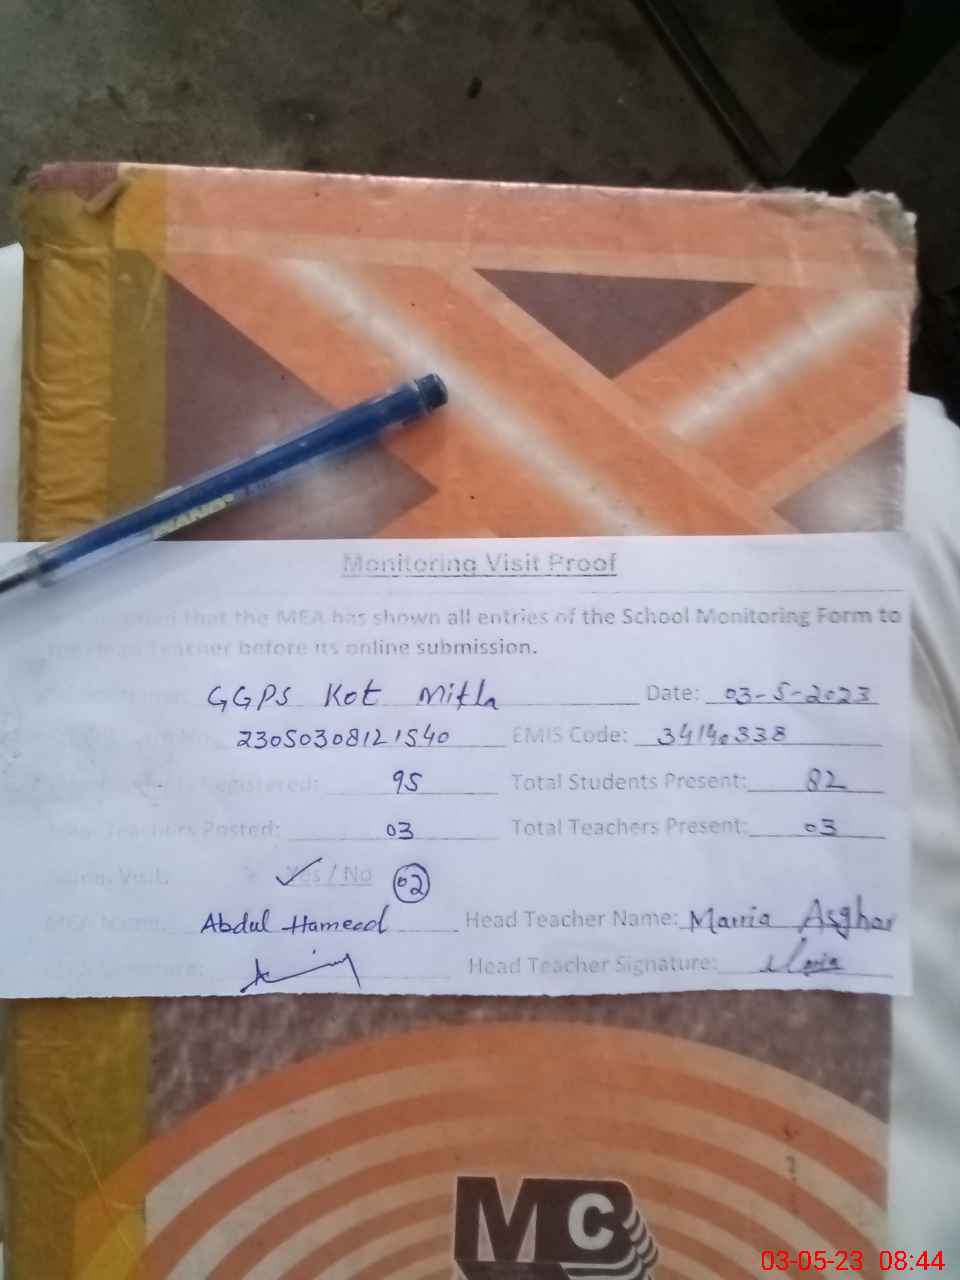 Monitoring Visit Proof
that the MEA has shown all entries of the School Monitoring Form to
the Head Teacher before its online submission.
GGPS Kot Mitla Date: 03-5-2023
2305030812 1540 EMIS Code: 34140338
Registered: 95 Total Students Present: 82
Teachers Posted: 03 Total Teachers Present: 03
Visit: Yes / No 02
MEA Name: Abdul Hameed Head Teacher Name: Marria Asghar
Signature: Head Teacher Signature: Maria
MC
03-05-23 08:44